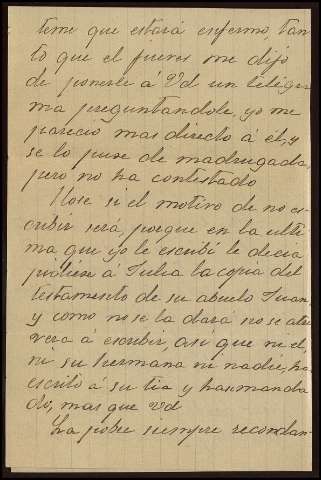 teme que estará enfermo tan
to que el jueves me dijo
de ponerle á Vd un telégra
ma preguntandole, yo me
pareció mas directo á él, y
se lo puse de madrugada,
pero no ha contestado
Nose si el motivo de no es-
cribir será, porque en la ulti
ma que yo le escribí le decia
pidiera á Julia la copia del
testamento de su abuelo Juan,
y como no se la dará no se atre
verá á escribir, asi que ni el,
ni su hermana ni nadie, ha
escrito á su tia y han manda
do, mas que Vd
La pobre siempre recordan-